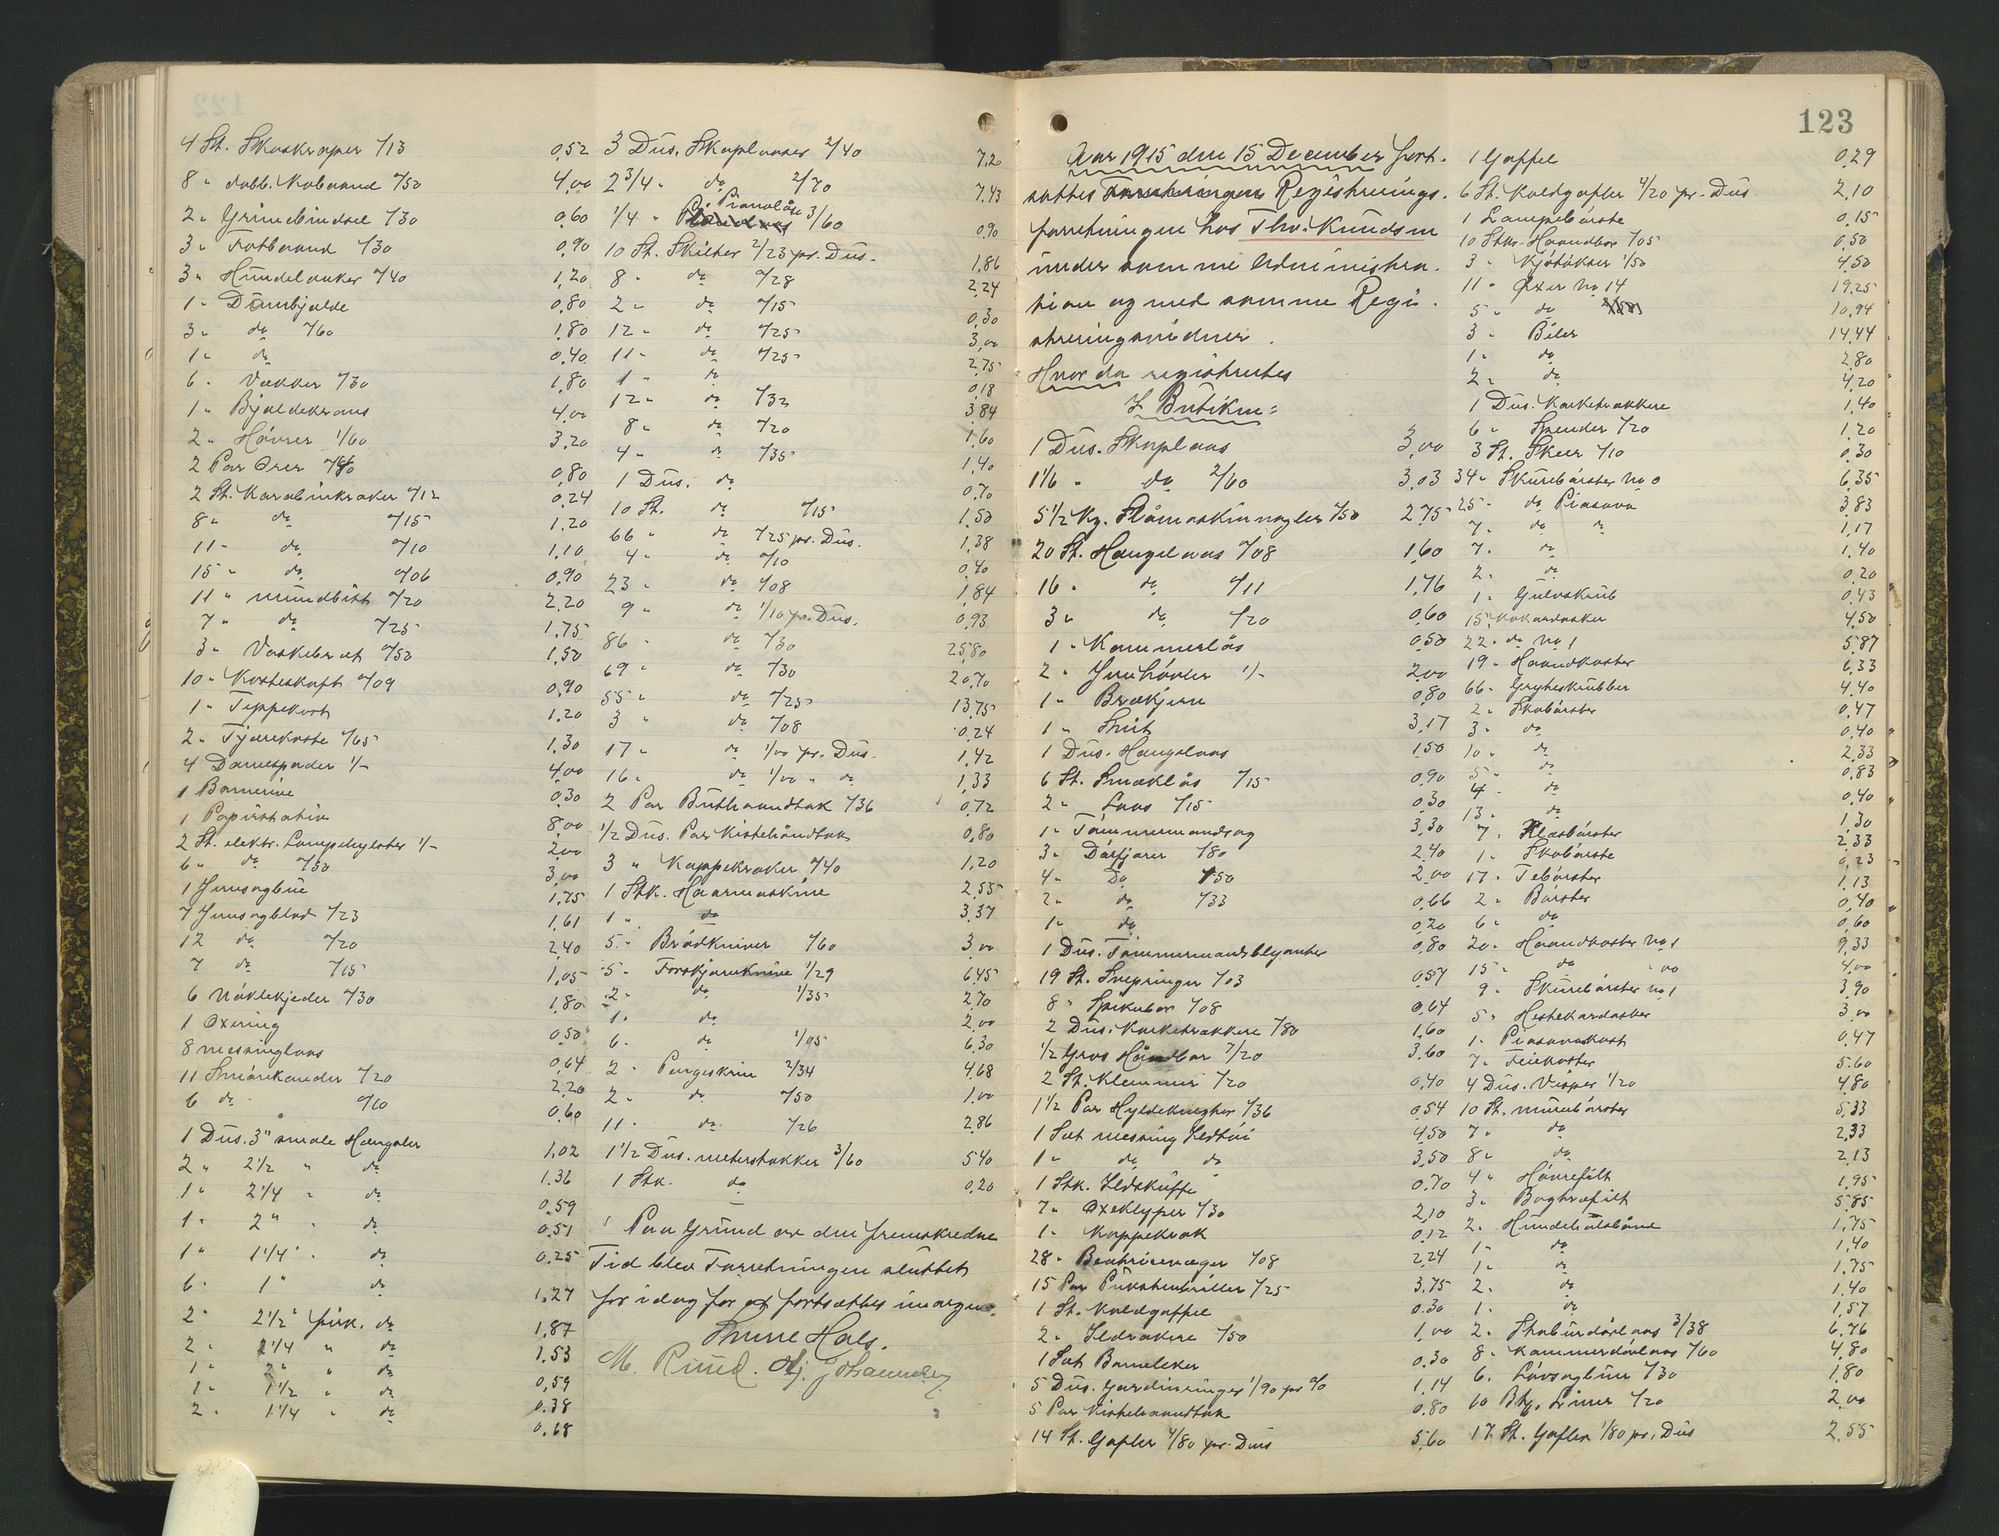 4 St. Skoskraper ./13 0,52
8 " dobb. Kobaand ./50 4,00
2 " Grimebindsel ./30 0,60
3 " Fotbaand ./30 0,90
3 " Hundelænker ./40 1,20
1 " Dumbjelde 0,80
3 " do ./60 1,80
1 " do 0,40
6 " Vækker ./30 1,80
1 " Bjeldekrans 4,00
2 " Høvrer 1/60 3,20
2 Par Ører ./40 0,80
2 St. Karabinkroker ./12 0,24
8 " do ./15 1,20
11 " do ./10 1,10
15 " do ./06 0,90
11 " mundbitt ./20 2,20
7 " do ./25 1,75
3 " Vaskebræt ./50 1,50
10 " Kosteskaft ./09 0,90
1 " Teppekost 1,20
2 " Tjærekoste ./65 1,30
4 Damespader 1/- 4,00
1 0,30
1 Papirstativ 8,00
2 St. elektr. Lampehylster 1/- 2,00
6 " do ./50 3,00
1 Jernsagbue 1,75
7 Jernsagblad ./23 1,61
12 do ./20 2,40
7 do ./15 1,05
6 Nøklekjeder ./30 1,80
1 Oxering 0,50
8 messinglaas 0,64
11 Smørekander ./20 2,20
6 do ./10 0,60
1 Dus. 3" smale Hængsler 1,02
2 " 2 1/2 " do 1,36
1 " 2 1/4 " do 0,59
1 " 2 " " do 0,51
1 " 1 1/4 " " do 0,25
6 " 1 " do 1,27
2 " 2 1/2 " firk. do 1,87
2 " 2 1/4 " do 1,53
1 " 2 " " do 0,59
1 " 1 1/2 " do 0,38
2 " 1 1/4 " do 0,68
3 Dus. Skaplaaser 2/40 7,20
2 3/4 " do 2/70 7,43
1/4 " Pianolåse 3/60 0,90
10 St. Skilter 2/23 pr. Dus. 1,86
8 " do ./28 2,24
2 " do ./15 0,30
12 " do ./25 3,00
11 " do ./25 2,75
1 " do 0,18
12 " do ./32 3,84
8 " do ./20 1,60
4 " do ./35 1,40
1 Dus. do 0,70
10 St. do ./15 1,50
66 " do ./25 pr. Dus. 1,38
4 " do ./10 0,40
23 " do ./08 1,84
9 " do 1/10 pr. Dus. 0,93
86 " do ./30 25,80
69 " do ./30 20,70
55 " do ./25 13,75
3 " do ./08 0,24
17 " do 1/00 pr. Dus. 1,42
16 " do 1/00 " do 1,33
2 Par Buthaandtak ./36 0,72
1/2 Dus. Par Kistehåndtak 0,80
3 " Kappekroker ./40 1,20
1 Stk. Haarmaskine 2,55
1 " do 3,37
5 " Brødkniver ./60 3,00
5 " Forskjærekniver 1/29 6,45
2 " do 1/35 2,70
1 " do 2,00
6 " do 1/05 6,30
2 " Pengeskrin 2/34 4,68
2 " do ./50 1,00
11 " do ./26 2,86
1 1/2 Dus. meterstokker 3/60 5,40
1 Stk. do 0,20
Paa Grund av den fremskredne
Tid blev Forretningen sluttet
for idag for at fortsættes imorgen.
Snurre Hals.
M. Ruud. Hj. Johannesen
123
Aar 1915 den 15 December fort-
sattes Registrerings-
forretningen hos Thv. Knudsen
under samme Administra-
tion og med samme Regi-
streringsvidner.
Hvor da registrertes
I Butiken:
1 Dus. Skaplaas 3,00
1 1/6 " do 2/60 3,03
5 1/2 Kg. Slåmaskinnagler ./50 2,75
20 St. Hængelaas ./08 1,60
16 " do ./11 1,76
3 " do ./20 0,60
1 " Kammerlås 0,50
2 " Jernhøvler 1/- 2,00
1 " Brækjern 0,80
1 " Snit 3,17
1 Dus. Hængelaas 1,50
6 St. Smæklås ./15 0,90
2 " Laas ./15 0,30
1 " Tømmermandsag 3,30
3 " Dørfjærer ./80 2,40
4 " Do ./50 2,00
2 " do ./33 0,66
1 " do 0,20
1 Dus. Tømmermandsblyanter 0,80
19 St. Svepringer ./03 0,57
8 " Spikubor ./08 0,64
2 Dus. Korketrækkere ./80 1,60
1/2 Gros Håndbor 7/20 3,60
2 St. Klemmer ./20 0,40
1 1/2 Par Hyldeknægter ./36 0,54
1 Sæt messing Ildtøi 4,50
1 " do do 3,50
1 Stk. Ildskuffe 0,70
7 " Oxeklyper ./30 2,10
1 " Kappekrok 0,12
28 " ./08 2,24
15 Par Pukstenbriller ./25 3,75
1 St. Koldgaffel 0,30
2 " Ildrakere ./50 1,00
1 Sæt Barneleker 0,30
5 Dus. Gardinringer 1/90 pr % 1,14
5 Par Kistehaandtak 0,80
14 St. Gafler 4/80 pr. Dus 5,60
1 Gaffel 0,29
6 St. Koldgafler 4/20 pr. Dus 2,10
1 Lampebørste 0,15
10 Stk. Haandbor ./05 0,50
3 " Kjøtøkser 1/50 4,50
11 " Øxer No 14 19,25
5 " do 10,94
3 " Biler 14,44
1 " do 2,80
2 " do 4,20
1 Dus. Korketrækkere 1,40
6 " Spender ./20 1,20
3 St. Skeer ./10 0,30
34 " Skurebørster No 0 6,35
25 " do Piasava 3,83
7 " do " 1,17
7 " do 1,40
2 " do 0,20
1 " Gulvskrub 0,43
15 " Kokardasker 4,50
22 " do No 1 5,87
19 " Haandkoster 6,33
66 " Gryteskrubber 4,40
2 " Skobørster 0,47
3 " do 0,40
10 " do 2,33
5 " do 0,83
4 " do 0,40
13 " do 1,30
7 " Klæsbørster 2,33
1 " Skobørste 0,23
17 " Tebørster 1,13
2 " Børster 0,40
6 " do 0,60
20 " Haandkoster No 1 9,33
15 " do " 00 4,00
9 " Skurebørster No 1 3,90
5 " Hestekardasker 3,00
1 " Piasavakost 0,47
7 " Feiekoster 5,60
4 Dus. Visper 1/20 4,80
10 St. murebørster 5,33
7 " do 2,33
8 " do 2,13
4 " Høvrefilt 1,95
3 " Bogtræfilt 5,85
2 " Hundehalsbånd 1,75
1 " do 1,40
1 " do 1,75
2 " do 1,40
1 " do 1,57
2 " Staburdørlaas 3/38 6,76
8 " Kammerdørlaas ./60 4,80
6 " Løvsagbuer ./30 1,80
10 Bkf. Limer ./20 2,00
17 St. Gafler 1/80 pr. Dus 2,55